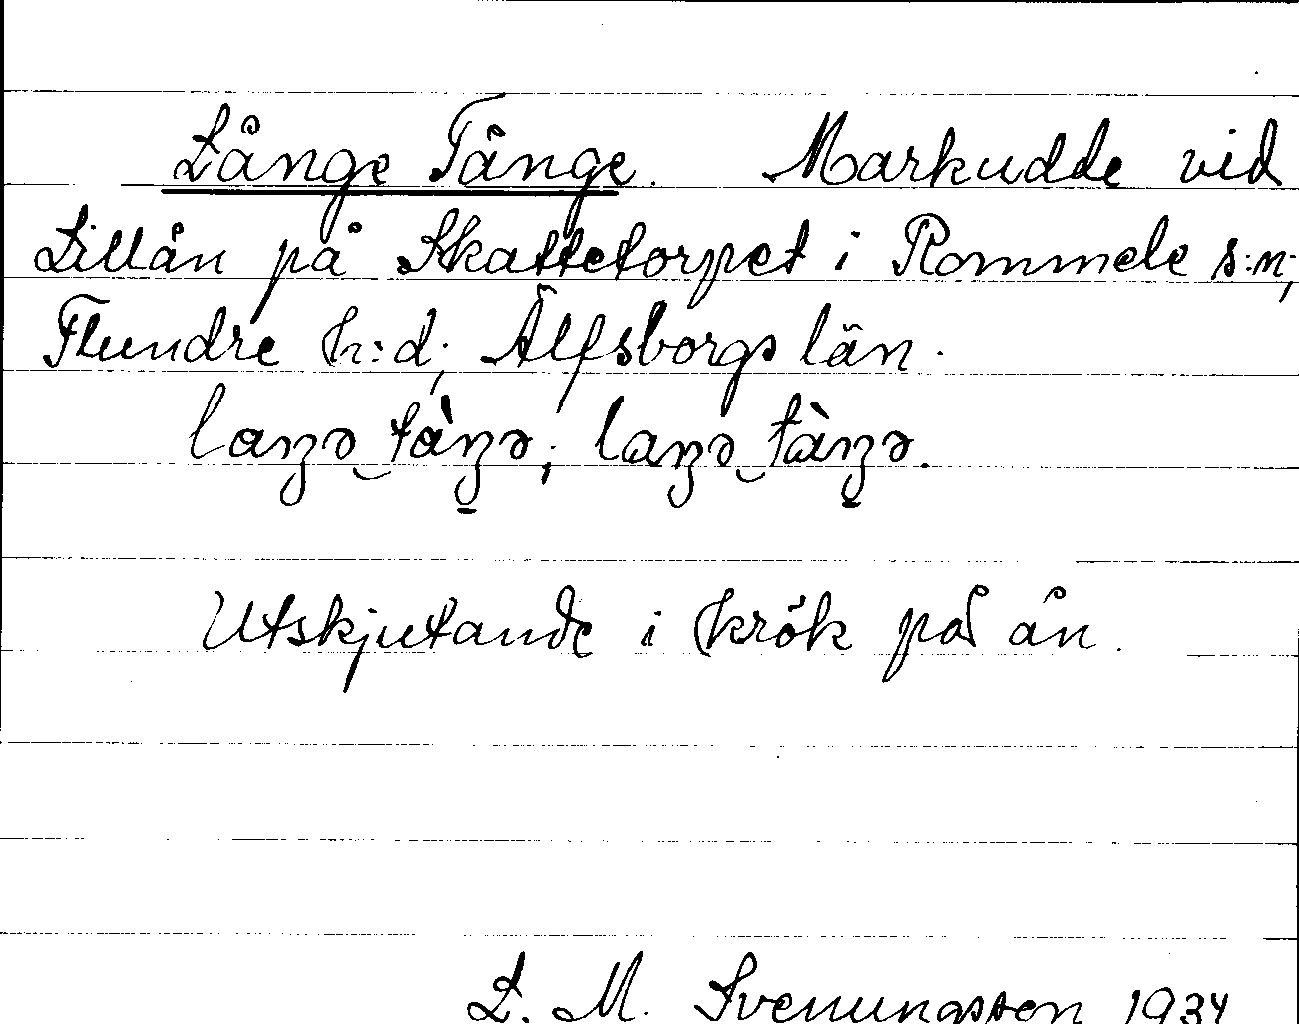 Långe Tånge. Markudde vid
Lillån på Skattetorpet i Rommele s:n;
Flundre h:d, Älfsborgs län.
laŋə tàŋə; laŋə tàŋə.
Utskjutande i krök på ån.
L. M. Svenungsson 1934